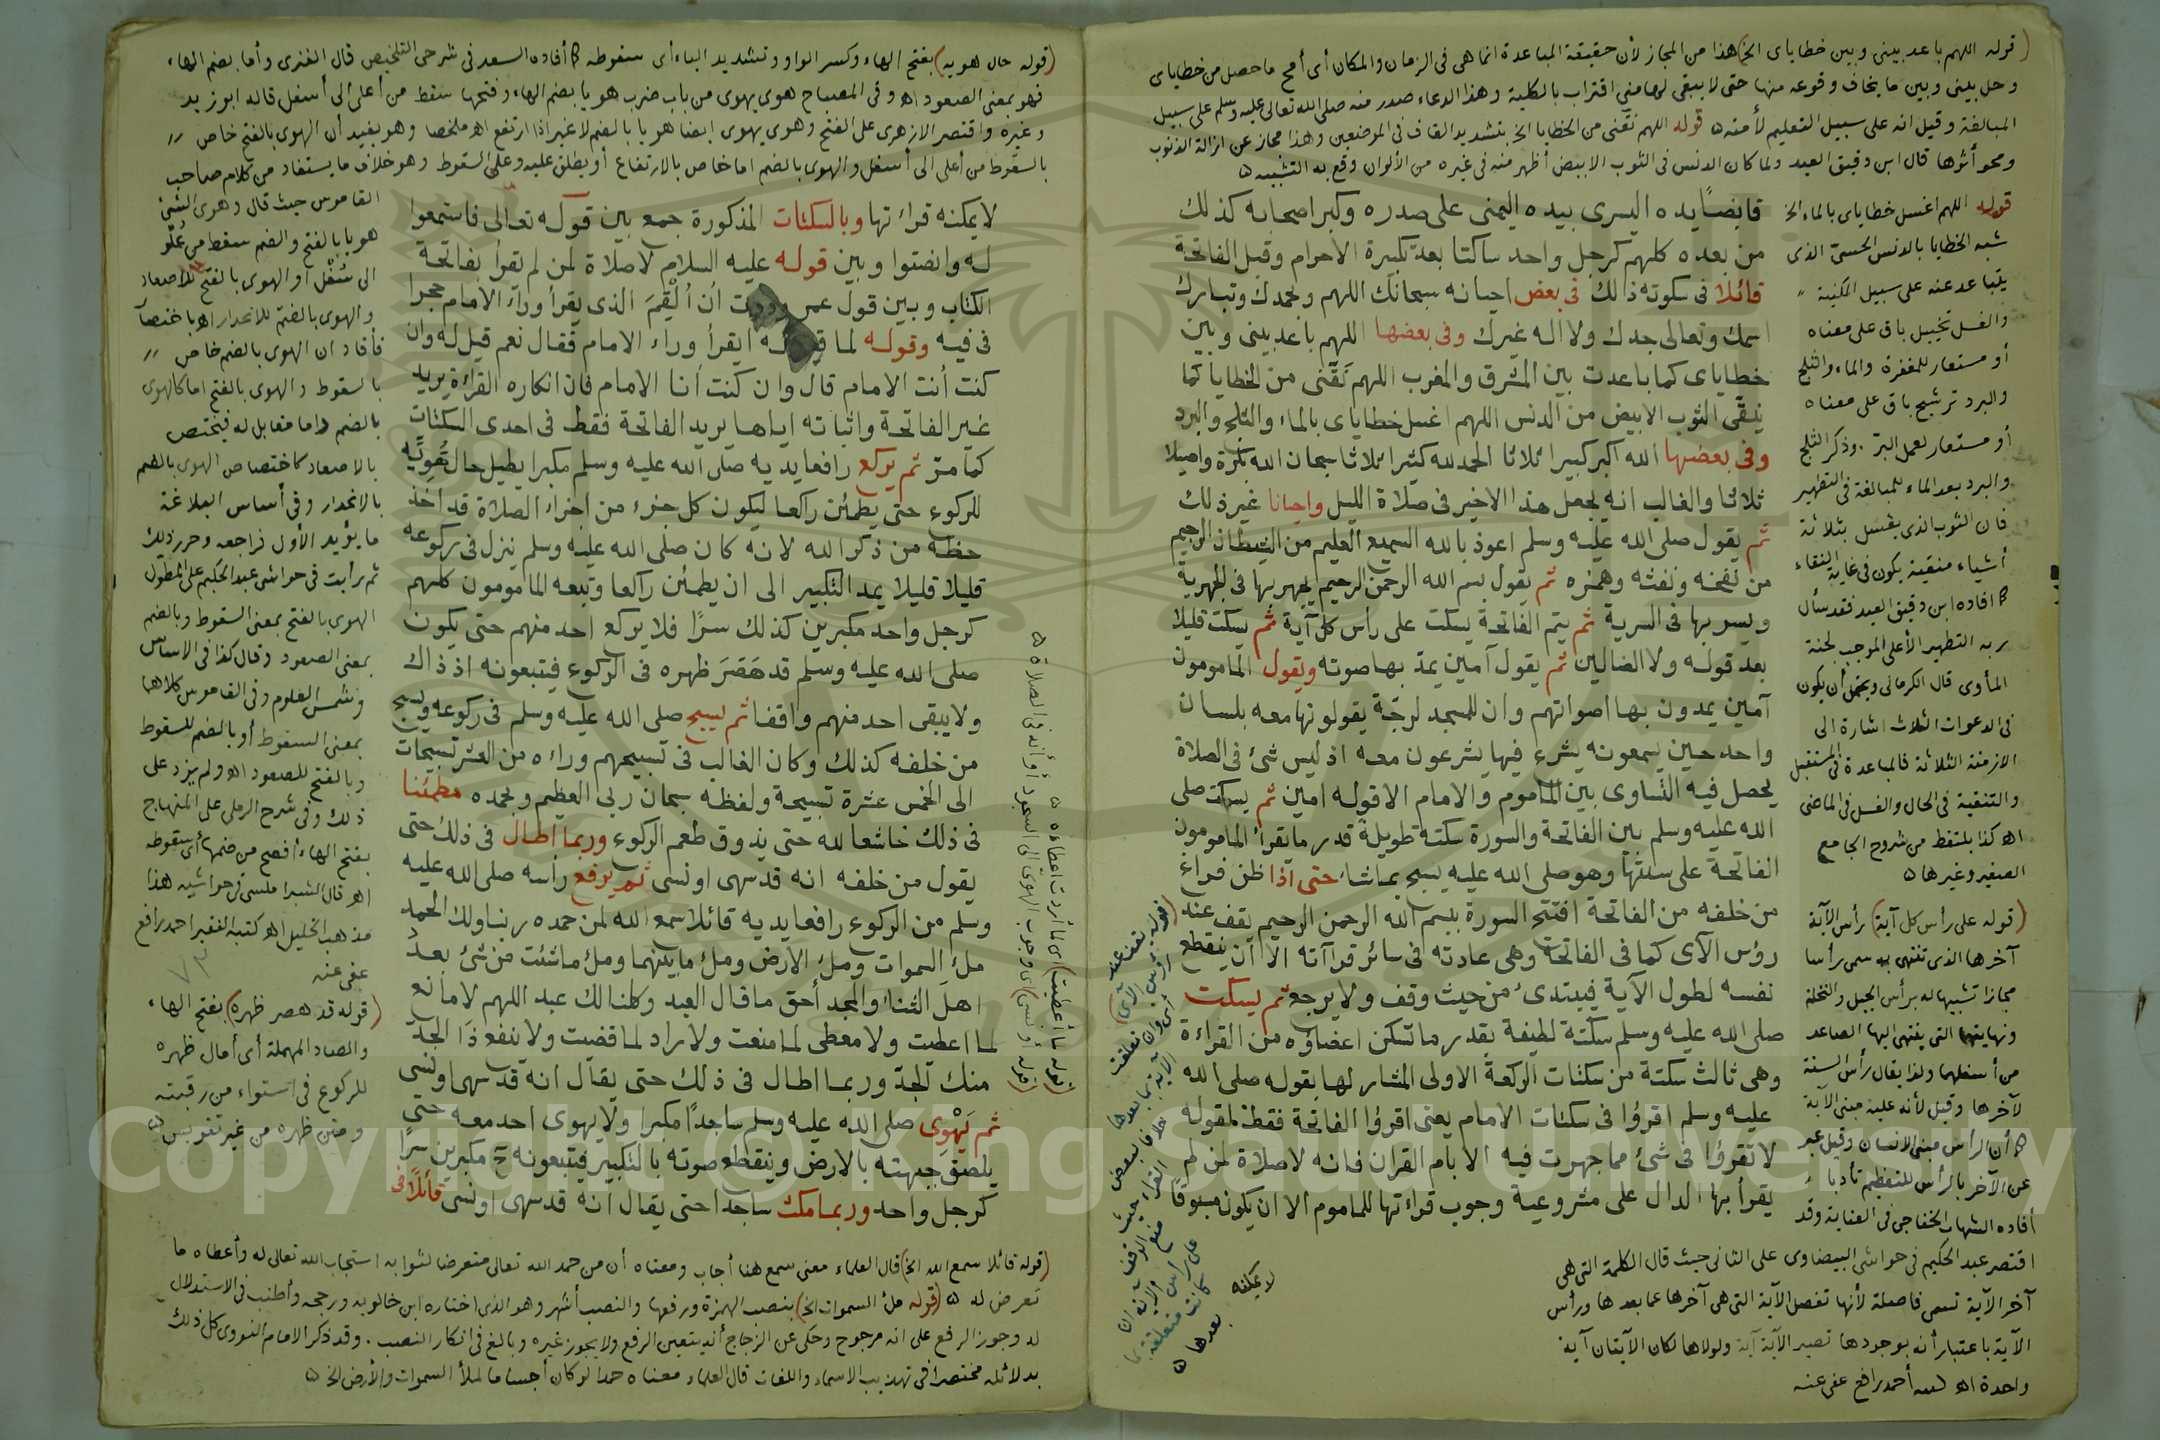 (قوله اللهم باعد بيني وبين خطاياى الخ) هذا من المجاز لأن حقيقة المباعدة انما هى فى الزمان والمكان أى أمح ما حصل من خطاياى
وحل بينى وبين ما يخاف وقوعه منها حتى لا يبقى لها منى اقتراب بالكلية وهذا الدعاء صدر منه صلى الله تعالى عليه وسلم على سبيل
المبالغة وقيل انه على سبيل التعليم لأمته ه قوله اللهم نقنى من الخطايا الخ بتشديد القاف فى الموضعين وهذا مجاز عن ازالة الذنوب
ومحو أثرها قال ابن دقيق العيد ولما كان الدنس فى الثوب الابيض أظهر منه فى غيره من الألوان وقع به التشبيه ه
قوله اللهم اغسل خطاياى بالماء الخ
شبه الخطايا بالدنس الحسى الذى
يتباعد عنه على سبيل المكنية
والغسل تخييل باق على معناه
أو مستعار للمغفرة والماء والثلج
والبرد ترشيح باق على معناه
أو مستعار لعمل البر . وذكر الثلج
والبرد بعد الماء للمبالغة فى التطهير
فان الثوب الذى يغسل بثلاثة
أشياء منقية يكون فى غاية النقاء
كما افاده ابن دقيق العيد فقد سأل
ربه التطهير الأعلى الموجب لجنة
المأوى قال الكرمانى ويحتمل أن يكون
فى الدعوات الثلاث اشارة الى
الازمنة الثلاثة فالمباعدة فى المستقبل
والتنقية فى الحال والغسل فى الماضى
اه كذا يلتقط من شروح الجامع
الصغير وغيرها ه
(قوله على رأس كل آية) رأس الآية
آخرها الذى تنتهى به سمى رأسا
مجازا تشبيها له برأس الجبل والنخلة
ونهايتها التى ينتهى اليها الصاعد
من أسفلهما ولذا يقال رأس السنة
لآخرها وقيل لأنه عليه مبنى الآية
كما أن الرأس مبنى الانسان وقيل عبر
عن الآخر بالرأس للتعظيم تأدبا
أفاده الشهاب الخفاجى فى العناية وقد
اقتصر عبد الحكيم فى حواشى البيضاوى على الثانى حيث قال الكلمة التى هى
آخر الآية تسمى فاصلة لأنها تفصل الآية التى هى آخرها عما بعدها ورأس
الآية باعتبار أنه بوجودها تصير الآية آية ولولاها لكان الآيتان آية
واحدة اه كتبه أحمد رافع عفى عنه
قابضا يده اليسرى بيده اليمنى على صدره وكبر اصحابه كذلك
من بعده كلهم كرجل واحد ساكتا بعد تكبيرة الاحرام وقبل الفاتحة
قائلا فى سكوته ذالك فى بعض احيانه سبحانك اللهم وبحمدك وتبارك
اسمك وتعالى جدك ولا اله غيرك وفى بعضها اللهم باعد بينى وبين
خطاياى كما باعدت بين المشرق والمغرب اللهم نقنى من الخطايا كما
ينقى الثوب الابيض من الدنس اللهم اغسل خطاياى بالماء والثلج والبرد
وفى بعضها الله اكبر كبيرا ثلاثا الحمد لله كثيرا ثلاثا سبحان الله بكرة واصيلا
ثلاثا والغالب انه يجعل هذا الاخير فى صلاة الليل واحيانا غير ذلك
ثم يقول صلى الله عليه وسلم اعوذ بالله السميع العليم من الشيطان الرجيم
من نفخه ونفثه وهمزه ثم يقول بسم الله الرحمن الرحيم يجهر بها فى الجهرية
ويسر بها فى السرية ثم يتم الفاتحة يسكت على رأس كل آية ثم يسكت قليلا
بعد قوله ولا الضالين ثم يقول آمين يمد بها صوته ويقول المأمومون
آمين يمدون بها اصواتهم وان للمسجد لرجة يقولونها معه بلسان
واحد حين يسمعونه يشرع فيها يشرعون معه اذ ليس شئ فى الصلاة
يحصل فيه التساوى بين المأموم والامام الا قوله امين ثم يسكت صلى
الله عليه وسلم بين الفاتحة والسورة سكتة طويلة قدر ما تقرأ المأمومون
الفاتحة على سكتها وهو صلى الله عليه يسبح بما شاء حتى اذا ظن فراغ
من خلفه من الفاتحة افتتح السورة ببسم الله الرحمن الرحيم يقف عند
رؤس الآى كما فى الفاتحة وهى عادته فى سائر قراآته الا ان ينقطع
نفسه لطول الآية فيبتدئ من حيث وقف ولا يرجع ثم يسكت
صلى الله عليه وسلم سكتة لطيفة بقدر ما تسكن اعضاؤه من القراءة
وهى ثالث سكتة من سكتات الركعة الاولى المشار لها بقوله صلى الله
عليه وسلم اقرؤا فى سكتات الامام يعنى اقرؤا الفاتحة فقط لقوله
لا تقرؤا فى شئ مما جهرت فيه الا بام القران فانه لا صلاة لمن لم
يقرأ بها الدال على مشروعية وجوب قراءتها للماموم الا ان يكون مسبوقا
لا يمكنه
(قوله يقف عند
رؤس الآى)
أى وان تعلقت
الآية بما بعدها
خلافا لبعض
القراء حيث
منع الوقف
على رأس الآية ان
كانت متعلقة بما
بعدها ه
(قوله حال هويه) بفتح الهاء وكسر الواو وتشديد الياء أى سقوطه كما أفاده السعد فى شرحى التلخيص قال الفنرى وأما بضم الهاء
فهو بمعنى الصعود اه وفى المصباح هوى يهوى من باب ضرب هويا بضم الهاء وفتحها سقط من أعلى الى أسفل قاله ابو زيد
وغيره واقتصر الازهرى على الفتح وهوى يهوى ايضا هويا بالضم لا غير اذا ارتفع اه ملخصا وهو يفيد أن الهوى بالفتح خاص
بالسقوط من أعلى الى أسفل والهوى بالضم اما خاص بالارتفاع أو يطلق عليه وعلى السقوط وهو خلاف ما يستفاد من كلام صاحب
القاموس حيث قال وهوى الشئ
هويا بالفتح والضم سقط من علو
الى سفل او الهوى بالفتح للاصعاد
والهوى بالضم للانحدار اه باختصار
فأفاد ان الهوى بالضم خاص
بالسقوط والهوى بالفتح اما كالهوى
بالضم واما مقابل له فيختص
بالاصعاد كاختصاص الهوى بالضم
بالانحدار وفى أساس البلاغة
ما يؤيد الأول فراجعه وحرر ذلك
ثم رأيت فى حواشى عبد الحكيم على المطول
الهوى بالفتح بمعنى السقوط وبالضم
بمعنى الصعود وقال كذا فى الاساس
وشمس العلوم وفى القاموس كلاهما
بمعنى السقوط أو بالضم للسقوط
وبالفتح للصعود اه ولم يزد على
ذلك وفى شرح الرملى على المنهاج
بفتح الهاء أفصح من ضمها أى سقوطه
اه قال الشبراملسى فى حواشيه هذا
مذهب الخليل اه كتبه الفقير احمد رافع
عفى عنه
(قوله قد هصر ظهره) بفتح الهاء
والصاد المهملة أى أمال ظهره
للركوع فى استواء من رقبته
ومتن ظهره من غير تقويس ه
لا يمكنه قراءتها وبالسكتات المذكورة جمع بين قوله تعالى فاستمعوا
له وانصتوا وبين قوله عليه السلام لا صلاة لمن لم تقرأ بفاتحة
الكتاب وبين قول عمر وددت ان ألقم الذى يقرأ وراء الامام حجرا
فى فيه وقوله لما قيل له ايقرأ وراء الامام فقال نعم قيل له وان
كنت أنت الامام قال وان كنت أنا الامام فان انكاره القراءة يريد
غير الفاتحة واثباته اياها يريد الفاتحة فقط فى احدى السكتات
كما مر ثم يركع رافعا يديه صلى الله عليه وسلم مكبرا يطيل حال هويه
للركوع حتى يطمئن راكعا ليكون كل جزء من اجزاء الصلاة قد اخذ
حظه من ذكر الله لانه كان صلى الله عليه وسلم ينزل فى ركوعه
قليلا قليلا يمد التكبير الى ان يطمئن راكعا وتبعه المأمومون كلهم
كرجل واحد مكبرين كذلك سرا فلا يركع احد منهم حتى يكون
صلى الله عليه وسلم قد هصر ظهره فى الركوع فيتبعونه اذ ذاك
ولا يبقى احد منهم واقفا ثم يسبح صلى الله عليه وسلم فى ركوعه ويسبح
من خلفه كذلك وكان الغالب فى تسبيحهم وراءه من العشر تسبيحات
الى الخمس عشرة تسبيحة ولفظه سبحان ربى العظيم وبحمده مطمئنا
فى ذلك خاشعا لله حتى يذوق طعم الركوع وربما اطال فى ذلك حتى
يقول من خلفه انه قد سهى او نسى ثم يرفع رأسه صلى الله عليه
وسلم من الركوع رافعا يديه قائلا سمع الله لمن حمده ربنا ولك الحمد
ملء السموات وملء الارض وملء ما بينهما وملء ما شئت من شئ بعد
اهل الثناء والمجد أحق ما قال العبد وكلنا لك عبد اللهم لا مانع
لما اعطيت ولا معطى لما منعت ولا راد لما قضيت ولا ينفع ذا الجد
منك الجد وربما اطال فى ذلك حتى يقال انه قد سهى او نسى
ثم يهوى صلى الله عليه وسلم ساجدا مكبرا ولا يهوى احد معه حتى
يلصق جبهته بالارض وينقطع صوته بالتكبير فيتبعونه ح مكبرين سرا
كرجل واحد وربما مكث ساجدا حتى يقال انه قد سهى او نسى قائلا فى
(قوله ما أعطيت) أى لما أردت اعطاءه ه
(قوله او نسى) أى وجوب الهوى الى السجود أو أنه فى الصلاة ه
(قوله قائلا سمع الله الخ) قال العلماء معنى سمع هنا أجاب ومعناه أن من حمد الله تعالى متعرضا لثوابه استجاب الله تعالى له وأعطاه ما
تعرض له ه (قوله ملء السموات الخ) بنصب الهمزة ورفعها والنصب أشهر وهو الذى اختاره ابن خالويه ورجحه وأطنب فى الاستدلال
له وجوز الرفع على انه مرجوح وحكى عن الزجاج أنه يتعين الرفع ولا يجوز غيره وبالغ فى انكار النصب . وقد ذكر الامام النووى كل ذلك
بدلائله مختصرا فى تهذيب الاسماء واللغات قال العلماء معناه حمدا لو كان أجساما لملأ السموات والأرض الخ ه
Copyright © King Saud University